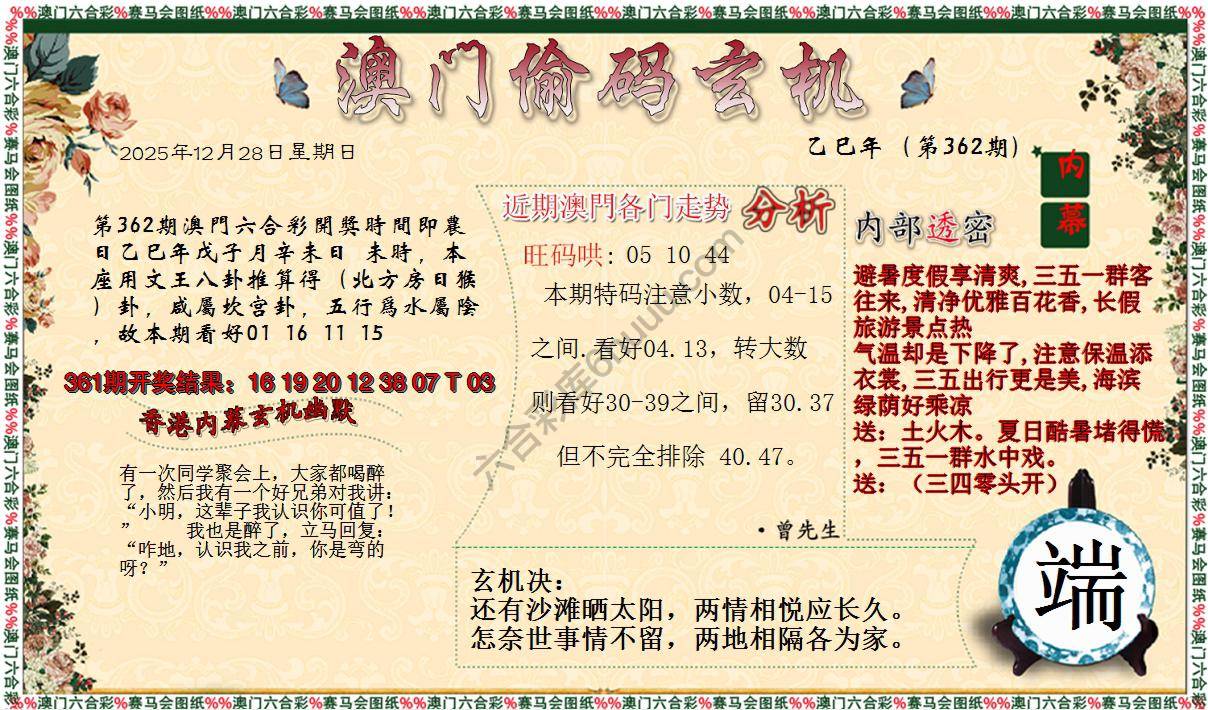 %%澳门六合彩%赛马会图纸%%澳门六合彩%赛马会图纸%%澳门六合彩%赛马会图纸%%澳门六合彩%赛马会图纸%%澳门六合彩%赛马会图纸%%澳门六合彩%赛马会图纸%%
澳门偷码玄机
2025年12月28日星期日
乙巳年（第362期）
内幕
第362期澳門六合彩開獎時間即農
日乙巳年戊子月辛未日 未時，本
座用文王八卦推算得（北方房日猴
）卦，咸屬坎宫卦，五行爲水屬陰
，故本期看好01 16 11 15
361期开奖结果：16 19 20 12 38 07 T 03
香港内幕玄机幽默
有一次同学聚会上，大家都喝醉
了，然后我有一个好兄弟对我讲：
“小明，这辈子我认识你可值了！
” 我也是醉了，立马回复：
“咋地，认识我之前，你是弯的
呀？”
近期澳門各门走势 分析
旺码哄: 05 10 44
本期特码注意小数，04-15
之间.看好04.13，转大数
则看好30-39之间，留30.37
但不完全排除 40.47。
·曾先生
内部透密
避暑度假享清爽,三五一群客
往来,清净优雅百花香,长假
旅游景点热
气温却是下降了,注意保温添
衣裳,三五出行更是美,海滨
绿荫好乘凉
送：土火木。夏日酷暑堵得慌
，三五一群水中戏。
送：（三四零头开）
玄机决：
还有沙滩晒太阳，两情相悦应长久。
怎奈世事情不留，两地相隔各为家。
端
%%澳门六合彩%赛马会图纸%%澳门六合彩%赛马会图纸%%澳门六合彩%赛马会图纸%%澳门六合彩%赛马会图纸%%澳门六合彩%赛马会图纸%%澳门六合彩%赛马会图纸%%